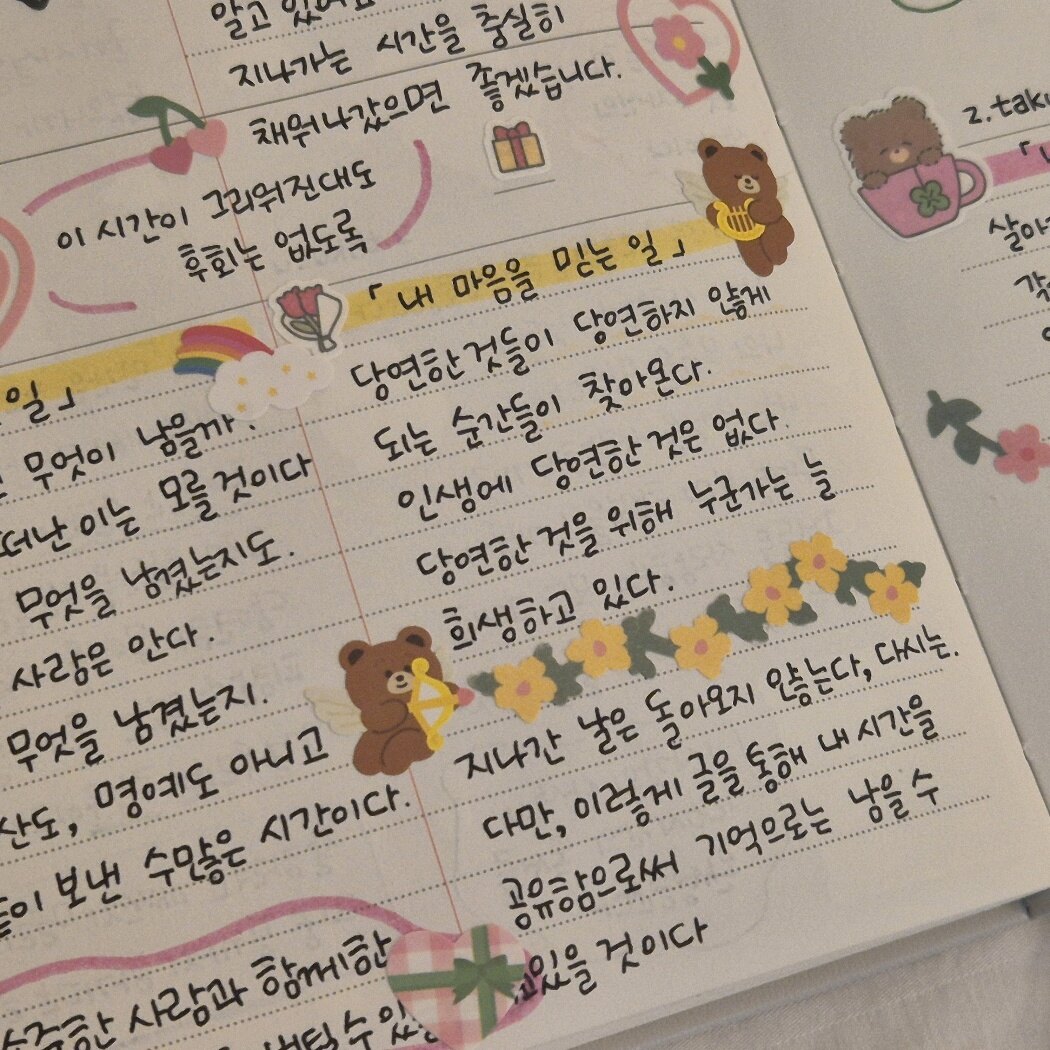 알고 있어요
지나가는 시간을 충실히
채워나갔으면 좋겠습니다.
이 시간이 그리워진대도
후회는 없도록
일」
무엇이 남을까.
떠난 이는 모를 것이다
무엇을 남겼는지도.
사람은 안다.
무엇을 남겼는지.
산도, 명예도 아니고
들이 보낸 수많은 시간이다.
소중한 사람과 함께한
버틸 수 있
「내 마음을 믿는 일」
당연한 것들이 당연하지 않게
되는 순간들이 찾아온다.
인생에 당연한 것은 없다.
당연한 것을 위해 누군가는 늘
희생하고 있다.
지나간 날은 돌아오지 않는다, 다시는.
다만, 이렇게 글을 통해 내 시간을
공유함으로써 기억으로는 남을 수
있을 것이다
2. taku
「내
살아